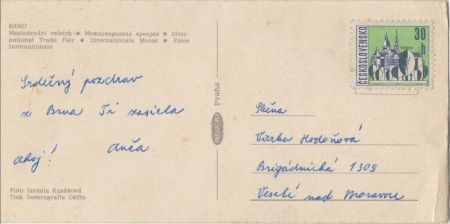 BRNO
Mezinárodní veletrh • Международная ярмарка • Inter-
national Trade Fair • Internationale Messe • Foire
Internationale
Srdečný pozdrav
z Brna Ti zasíla
Ahoj!
Foto Jarmila Kusáková
Tisk Severografia Děčín
Praha
ČESKOSLOVENSKO
30
h
Slečna
Hodoňová
Brigádnická 1309
Veselí nad Moravou